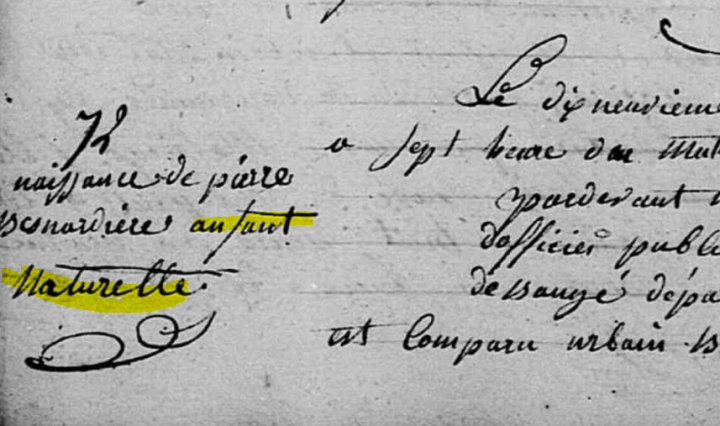 naissance de pierre
Besnardiere anfant
Naturelle.
Le dixneuvieme
a sept heure du mat
pardevant
dofficié publi
de Baugé dépa
est comparu urbain B